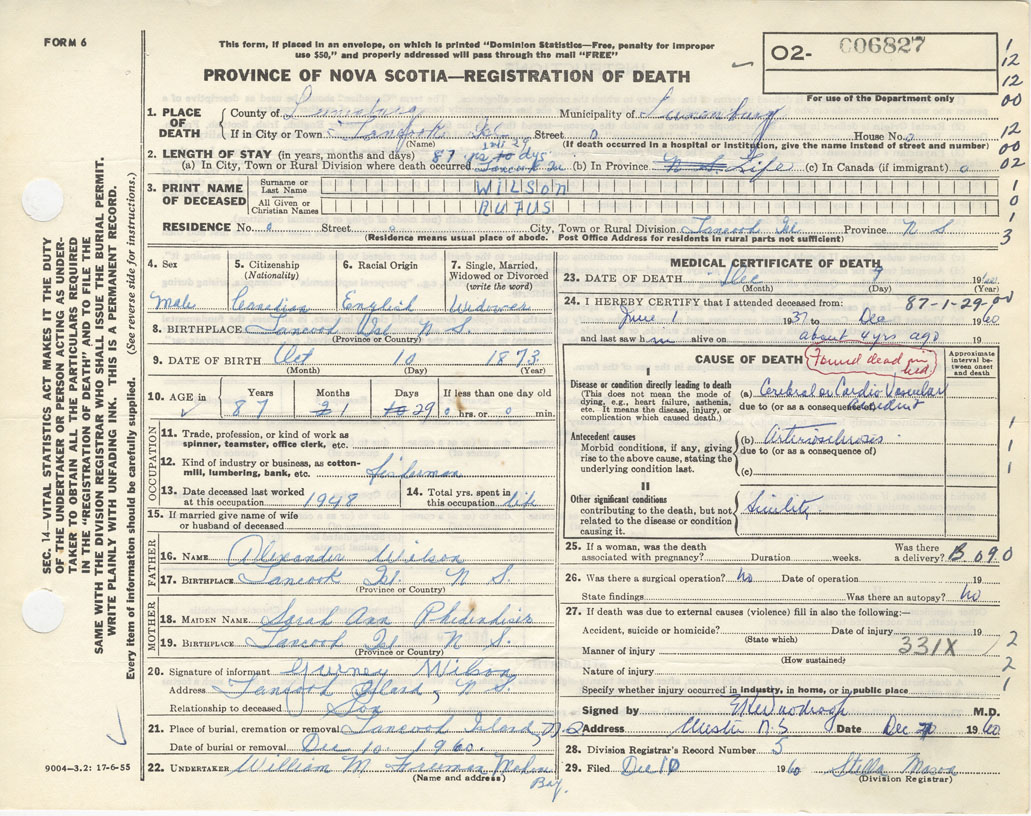 FORM 6
This form, if placed in an envelope, on which is printed "Dominion Statistics—Free, penalty for improper
use $50," and properly addressed will pass through the mail "FREE"
PROVINCE OF NOVA SCOTIA—REGISTRATION OF DEATH
O2- 006827
For use of the Department only
1. PLACE OF DEATH
County of Lunenburg Municipality of Lunenburg
If in City or Town Tancook Isl Street 0 House No. 0
(Name) (If death occurred in a hospital or institution, give the name instead of street and number)
2. LENGTH OF STAY (in years, months and days) 87 yrs
(a) In City, Town or Rural Division where death occurred Tancook Isl (b) In Province N S Life (c) In Canada (if immigrant) 0
3. PRINT NAME OF DECEASED
Surname or Last Name WILSON
All Given or Christian Names RUFUS
RESIDENCE No. 0 Street 0 City, Town or Rural Division Tancook Isl Province N S
(Residence means usual place of abode. Post Office Address for residents in rural parts not sufficient)
1
12
12
00
12
00
02
1
0
1
3
4. Sex 5. Citizenship (Nationality) 6. Racial Origin 7. Single, Married, Widowed or Divorced (write the word)
Male Canadian English Widower
8. BIRTHPLACE Tancook Isl. N S.
(Province or Country)
9. DATE OF BIRTH Oct 10 1873
(Month) (Day) (Year)
10. AGE in Years Months Days If less than one day
87 1 29 0 hrs. or 0 min.
OCCUPATION
11. Trade, profession, or kind of work as
spinner, teamster, office clerk, etc.
12. Kind of industry or business, as cotton-
mill, lumbering, bank, etc. fisherman
13. Date deceased last worked
at this occupation 1948
14. Total yrs. spent in
this occupation life
15. If married give name of wife
or husband of deceased
FATHER
16. NAME Alexander Wilson
17. BIRTHPLACE Tancook Isl. N S.
(Province or Country)
MOTHER
18. MAIDEN NAME Sarah Ann
19. BIRTHPLACE Tancook Isl N S.
(Province or Country)
20. Signature of informant Gurney Wilson
Address Tancook Island, N S.
Relationship to deceased Son
21. Place of burial, cremation or removal Tancook Island, N.S
Date of burial or removal Dec 10. 1960.
22. UNDERTAKER William M. Freeman Mahone
Bay.
(Name and address)
MEDICAL CERTIFICATE OF DEATH
23. DATE OF DEATH Dec 9 1960
(Month) (Day) (Year)
24. I HEREBY CERTIFY that I attended deceased from: 87-1-29-00
June 1 1937 to Dec 1960
and last saw him alive on about 4 yrs ago
CAUSE OF DEATH Found dead in bed
Approximate interval between onset and death
I
Disease or condition directly leading to death
(This does not mean the mode of dying, e.g., heart failure, asthenia, etc. It means the disease, injury, or complication which caused death.)
(a) Cerebral or Cardio Vascular
due to (or as a consequence of) accident
Antecedent causes
Morbid conditions, if any, giving rise to the above cause, stating the underlying condition last.
(b) Arteriosclerosis
due to (or as a consequence of)
(c)
II
Other significant conditions
contributing to the death, but not related to the disease or condition causing it.
Senility
1
1
1
25. If a woman, was the death
associated with pregnancy? Duration weeks. Was there a delivery? B 090
26. Was there a surgical operation? No Date of operation 19
State findings Was there an autopsy? No
27. If death was due to external causes (violence) fill in also the following:—
Accident, suicide or homicide? Date of injury 19
(State which)
Manner of injury 331X
(How sustained)
Nature of injury
Specify whether injury occurred in industry, in home, or in public place
2
2
1
Signed by M.D.
Address Chester N.S Date Dec 1960
28. Division Registrar's Record Number 5
29. Filed Dec 10 1960 Stella Mason
(Division Registrar)
SEC. 14—VITAL STATISTICS ACT MAKES IT THE DUTY
OF THE UNDERTAKER OR PERSON ACTING AS UNDER-
TAKER TO OBTAIN ALL THE PARTICULARS REQUIRED
IN THE "REGISTRATION OF DEATH" AND TO FILE THE
SAME WITH THE DIVISION REGISTRAR WHO SHALL ISSUE THE BURIAL PERMIT.
WRITE PLAINLY WITH UNFADING INK. THIS IS A PERMANENT RECORD.
Every item of information should be carefully supplied. (See reverse side for instructions.)
9004-3.2: 17-6-55